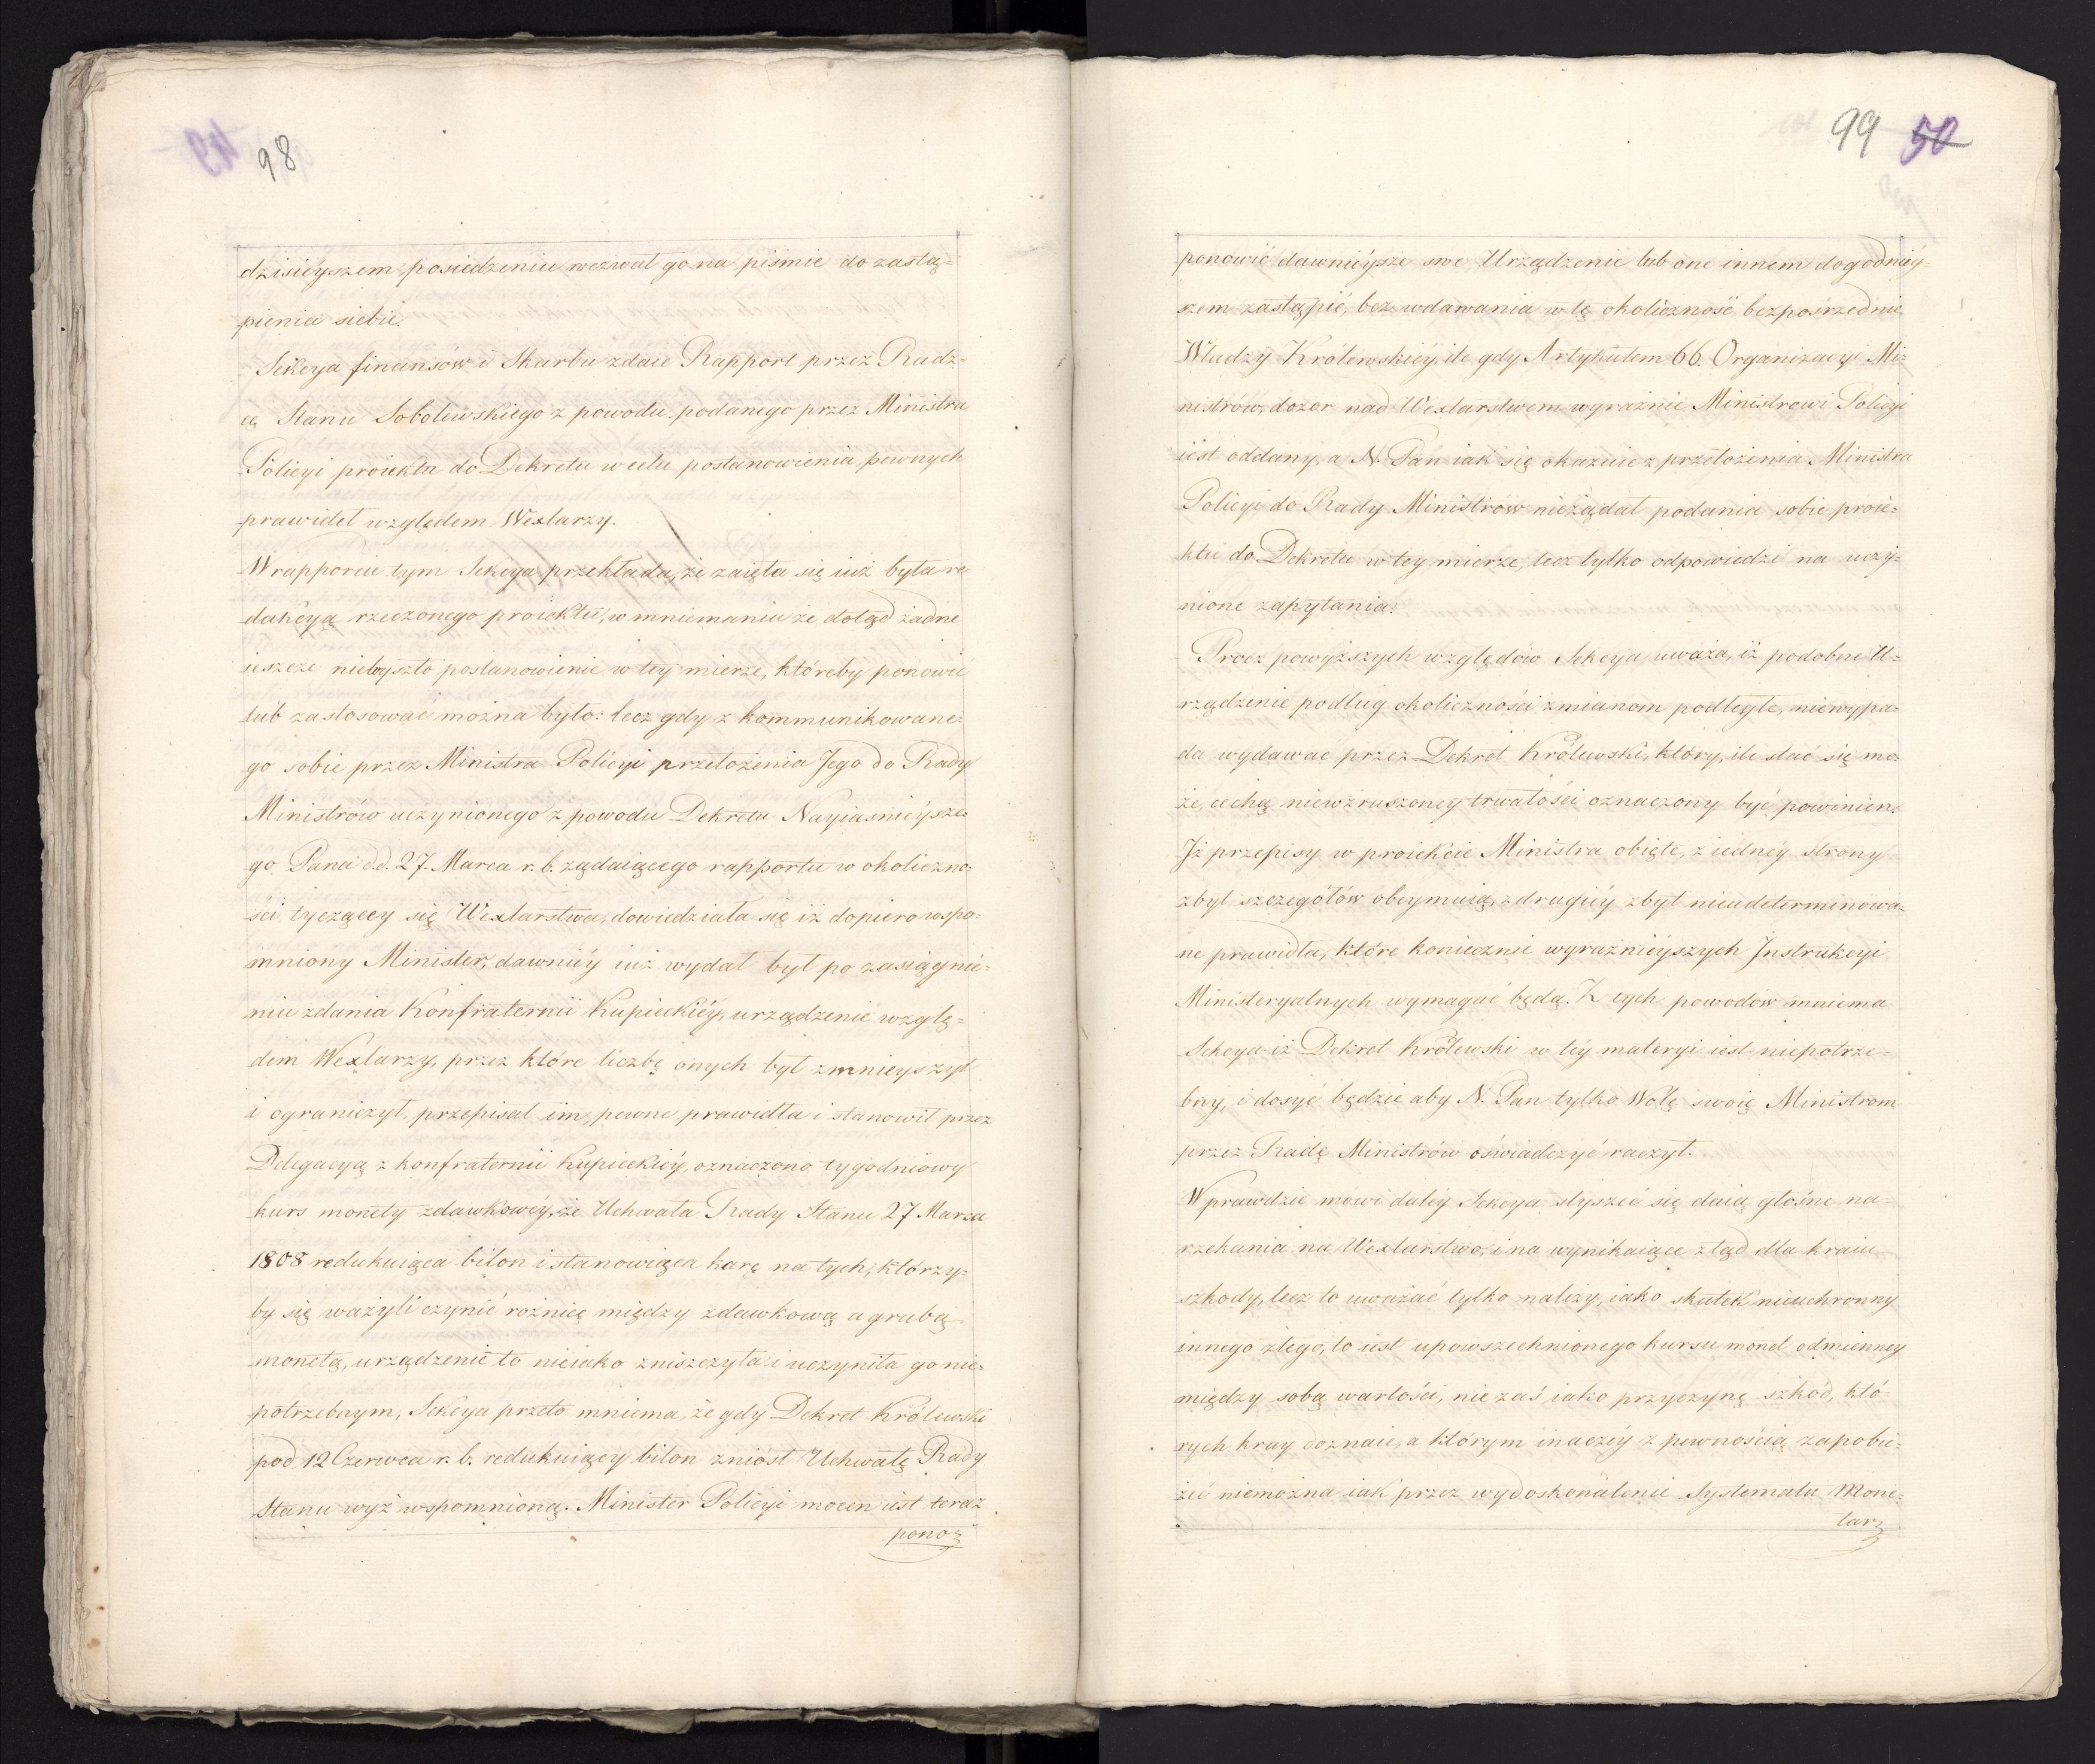 98
dzisieyszem posiedzeniu wezwał go na piśmie do zastą=
pienia siebie.
Sekcya finansów i Skarbu zdaie Rapport przez Radz=
cę Stanu Sobolewskiego z powodu podanego przez Ministra
Policyi proiektu do Dekretu w celu postanowienia pewnych
prawideł względem Wexlarzy.
W rapporcie tym Sekcya przekłada, że zaięła się iuż była re=
dakcyą rzeczonego proiektu, w mniemaniu że dotąd żadne
ieszcze niebyszło postanowienie w tey mierze, któreby ponowić
lub zastosować można było: lecz gdy z kommunikowane=
go sobie przez Ministra Policyi przełożenia Jego do Rady
Ministrów uczynionego z powodu Dekretu Nayiaśnieysze=
go Pana d.d. 27. Marca r. b. żądaiącego rapportu w okoliczno=
ści tyczącey się Wexlarstwa, dowiedziała się iż dopiero wspo=
mniony Minister, dawniéy iuż wydał był po zasiągnie=
niu zdania Konfraternii Kupieckiéy, urządzenie wzglę=
dem Wexlarzy, przez które liczbę onych był zmnieyszył
i ograniczył, przepisał im pewne prawidła i stanowił przez
Delegacyą z konfraternii Kupieckiéy, oznaczono tygodniowy
kurs monety zdawkowéy, że Uchwała Rady Stanu 27 Marca
1808 redukuiąca bilon i stanowiąca karę na tych, którzy=
by się ważyli czynić rożnicę między zdawkową a grubą
monetą, urządzenie to nieiako zniszczyła i uczyniła go nie=
potrzebnym, Sekcya przeto mniema, że gdy Dekret Królewski
pod 12 Czerwca r. b. redukuiący bilon zniósł Uchwałę Rady
Stanu wyż wspomnioną. Minister Policyi mocen iest teraz
pono=
99 50
ponowić dawnieysze swe Urządzenie lub one innem dogodniéy=
szem zastąpić, bez wdawania w tę okoliczność bezpośrzednie
Władzy Królewskiéy, ile gdy Artykułem 66. Organizacyi Mi=
nistrów, dozor nad Wexlarstwem wyraźnie Ministrowi Policyi
iest oddany, a N. Pan iak się okazuie z przełożenia Ministra
Policyi do Rady Ministrów nieżądał podania sobie proie=
ktu do Dekretu w tey mierze, lecz tylko odpowiedzi na uczy=
nione zapytania.
Procz powyższych względów Sekcya uważa, iż podobne U=
rządzenie podług okoliczności zmianom podległe, niewypa=
da wydawać przez Dekret Królewski, który, ile stać się mo=
że, cechą niewzruszoney trwałości oznaczony być powinien.
Iż przepisy w proiekcie Ministra obięte, z iednéy strony
zbyt szczegółów obeymuią, z drugiéy zbyt nieudeterminowa=
ne prawidła, które koniecznie wyraźnieyszych Instrukcyi
Ministeryalnych wymagać będą. Z tych powodów mniema
Sekcya iż Dekret Królewski w téy materyi iest niepotrze=
bny, i dosyć będzie aby N. Pan tylko Wolę swoię Ministrom
przez Radę Ministrów oświadczyć raczył.
Wprawdzie mowi daléy Sekcya słyszeć się daią głośne na=
rzekania na Wexlarstwo, i na wynikaiące ztąd dla kraiu
szkody, lecz to uważać tylko należy, iako skutek nieuchronny
innego złego, to iest upowszechnionego kursu monet odmienney
między sobą wartości, nie zaś iako przyczynę szkod, któ=
rych kray doznaie, a którym inaczéy z pewnością zapobie=
żeć niemożna iak przez wydoskonalenie Systematu Mone=
tar=